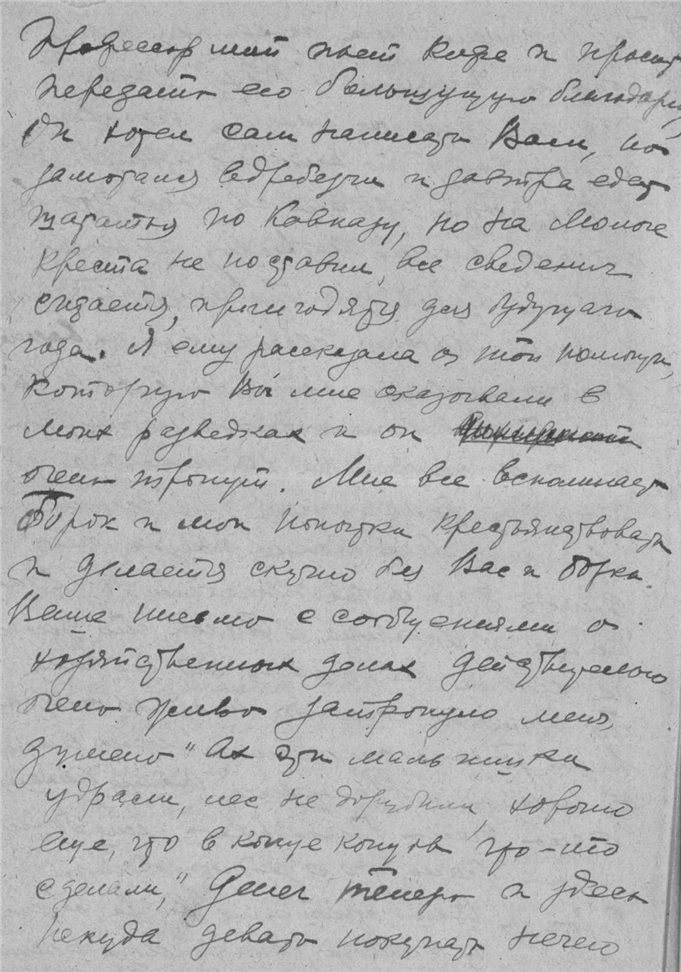 Профессор мой пьет кофе и просит
передать его большущую благодарн
Он хотел сам написать Вам, но
замотался вдребезги и завтра едет
шататься по Кавказу, но на Мологе
креста не поставил, все сведения
считает, пригодятся для будущаго
года. Я ему рассказала о той помощи,
которую Вы мне оказывали в
моих разведках и он
очень тронут. Мне все вспоминает
Борок и мои попытки крестьянствовать
и делается скучно без Вас и Борка.
Ваше письмо с сообщениями о
хозяйственных делах действительно
очень живо затронуло меня,
думаю "Ах эти мальчишки
удрали, лес не дорубили, хорошо
еще, что в конце концов что-то
сделали," Денег теперь и здесь
некуда девать покупать нечего